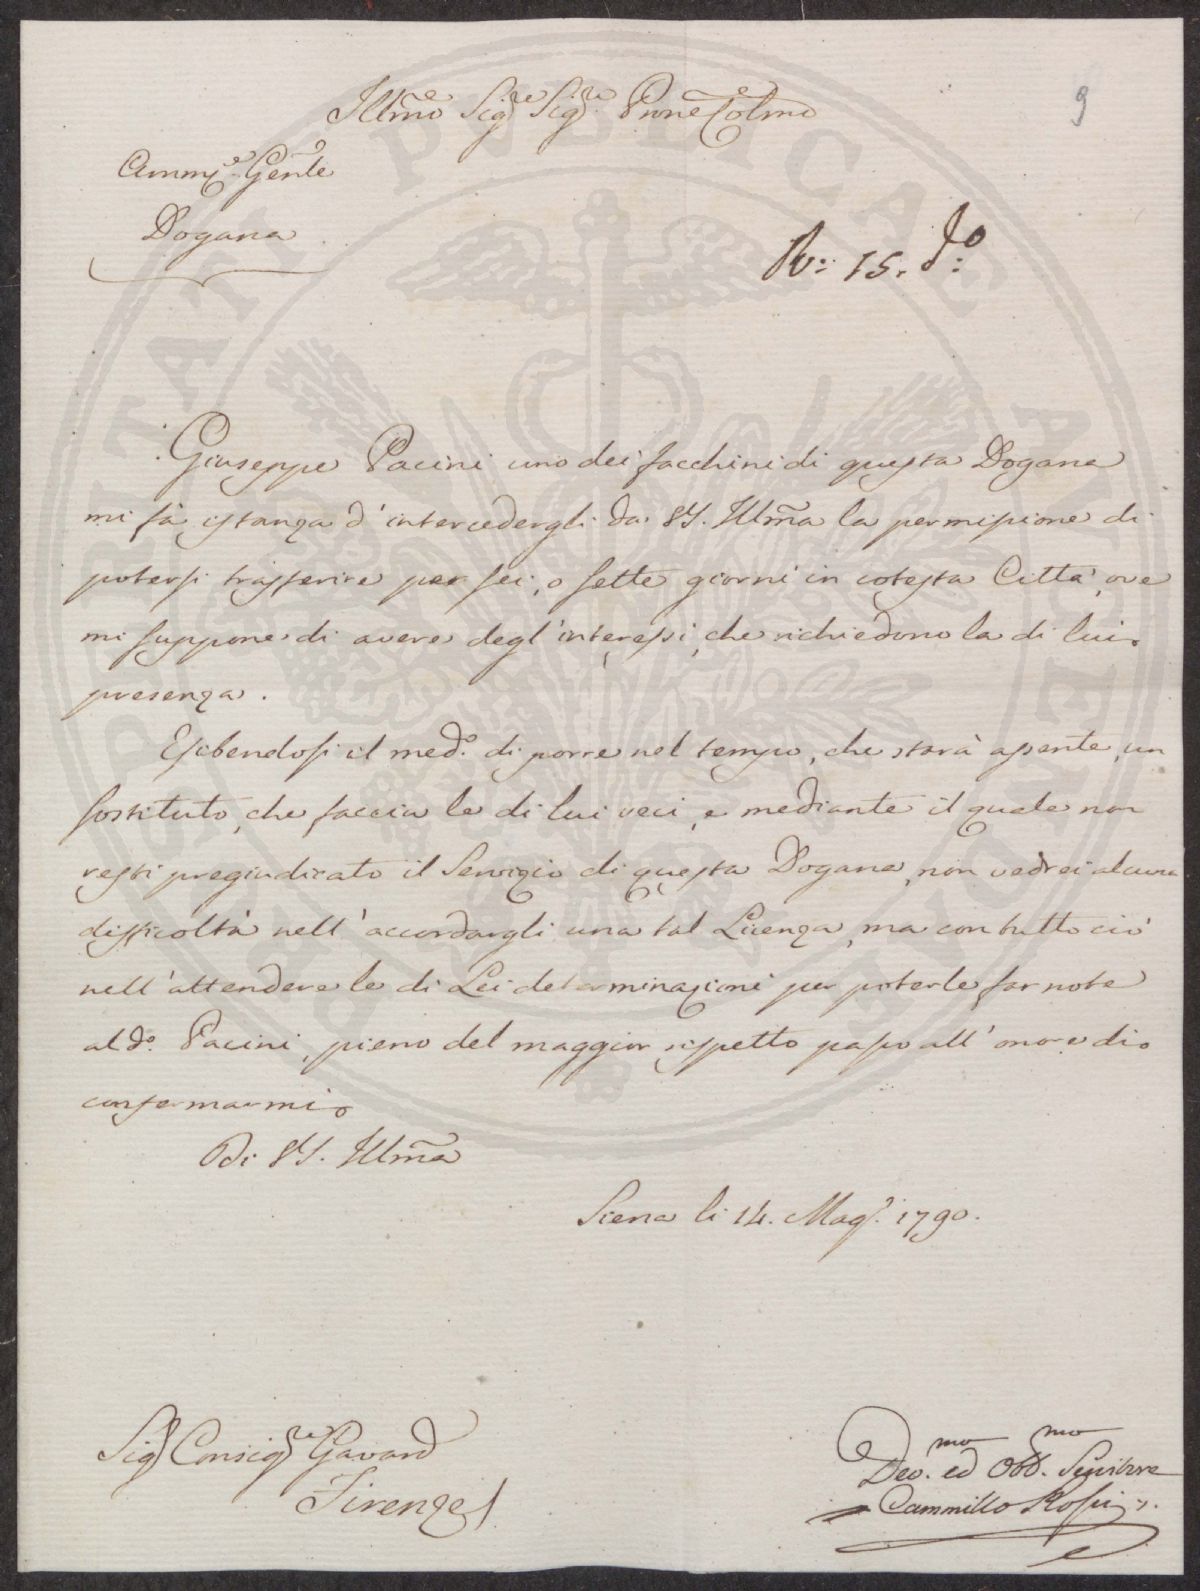 9
Illmo Sigre Sigre Pnne Colmo
Ammne Genle
Dogana
Rx: 15. do:
Giuseppe Pacini uno dei facchini di questa Dogana
mi fà istanza d'intercedergli da VS. Illma la permissione di
potersi trasferire per sei, o sette giorni in cotesta Città, ove
mi suppone di avere degl'interessi, che richiedono la di lui
presenza.
Esibendosi il medo. di porre nel tempo, che starà assente, un
sostituto, che faccia le di lui veci, e mediante il quale non
resti pregiudicato il Servizio di questa Dogana, non vedrei alcuna
difficoltà nell'accordargli una tal Licenza, ma con tutto ciò
nell'attendere le di Lei determinazioni per poterle far note
al do. Pacini, pieno del maggior rispetto passo all'onore di
confermarmi
Di VS. Illma
Siena li 14. Mago. 1790.
Sigre Consigre Gavard
Firenze
Devmo. ed Obbmo. Servitore
Cammillo Rossi
PROSPERITATI PVBLICAE AVGENDAE